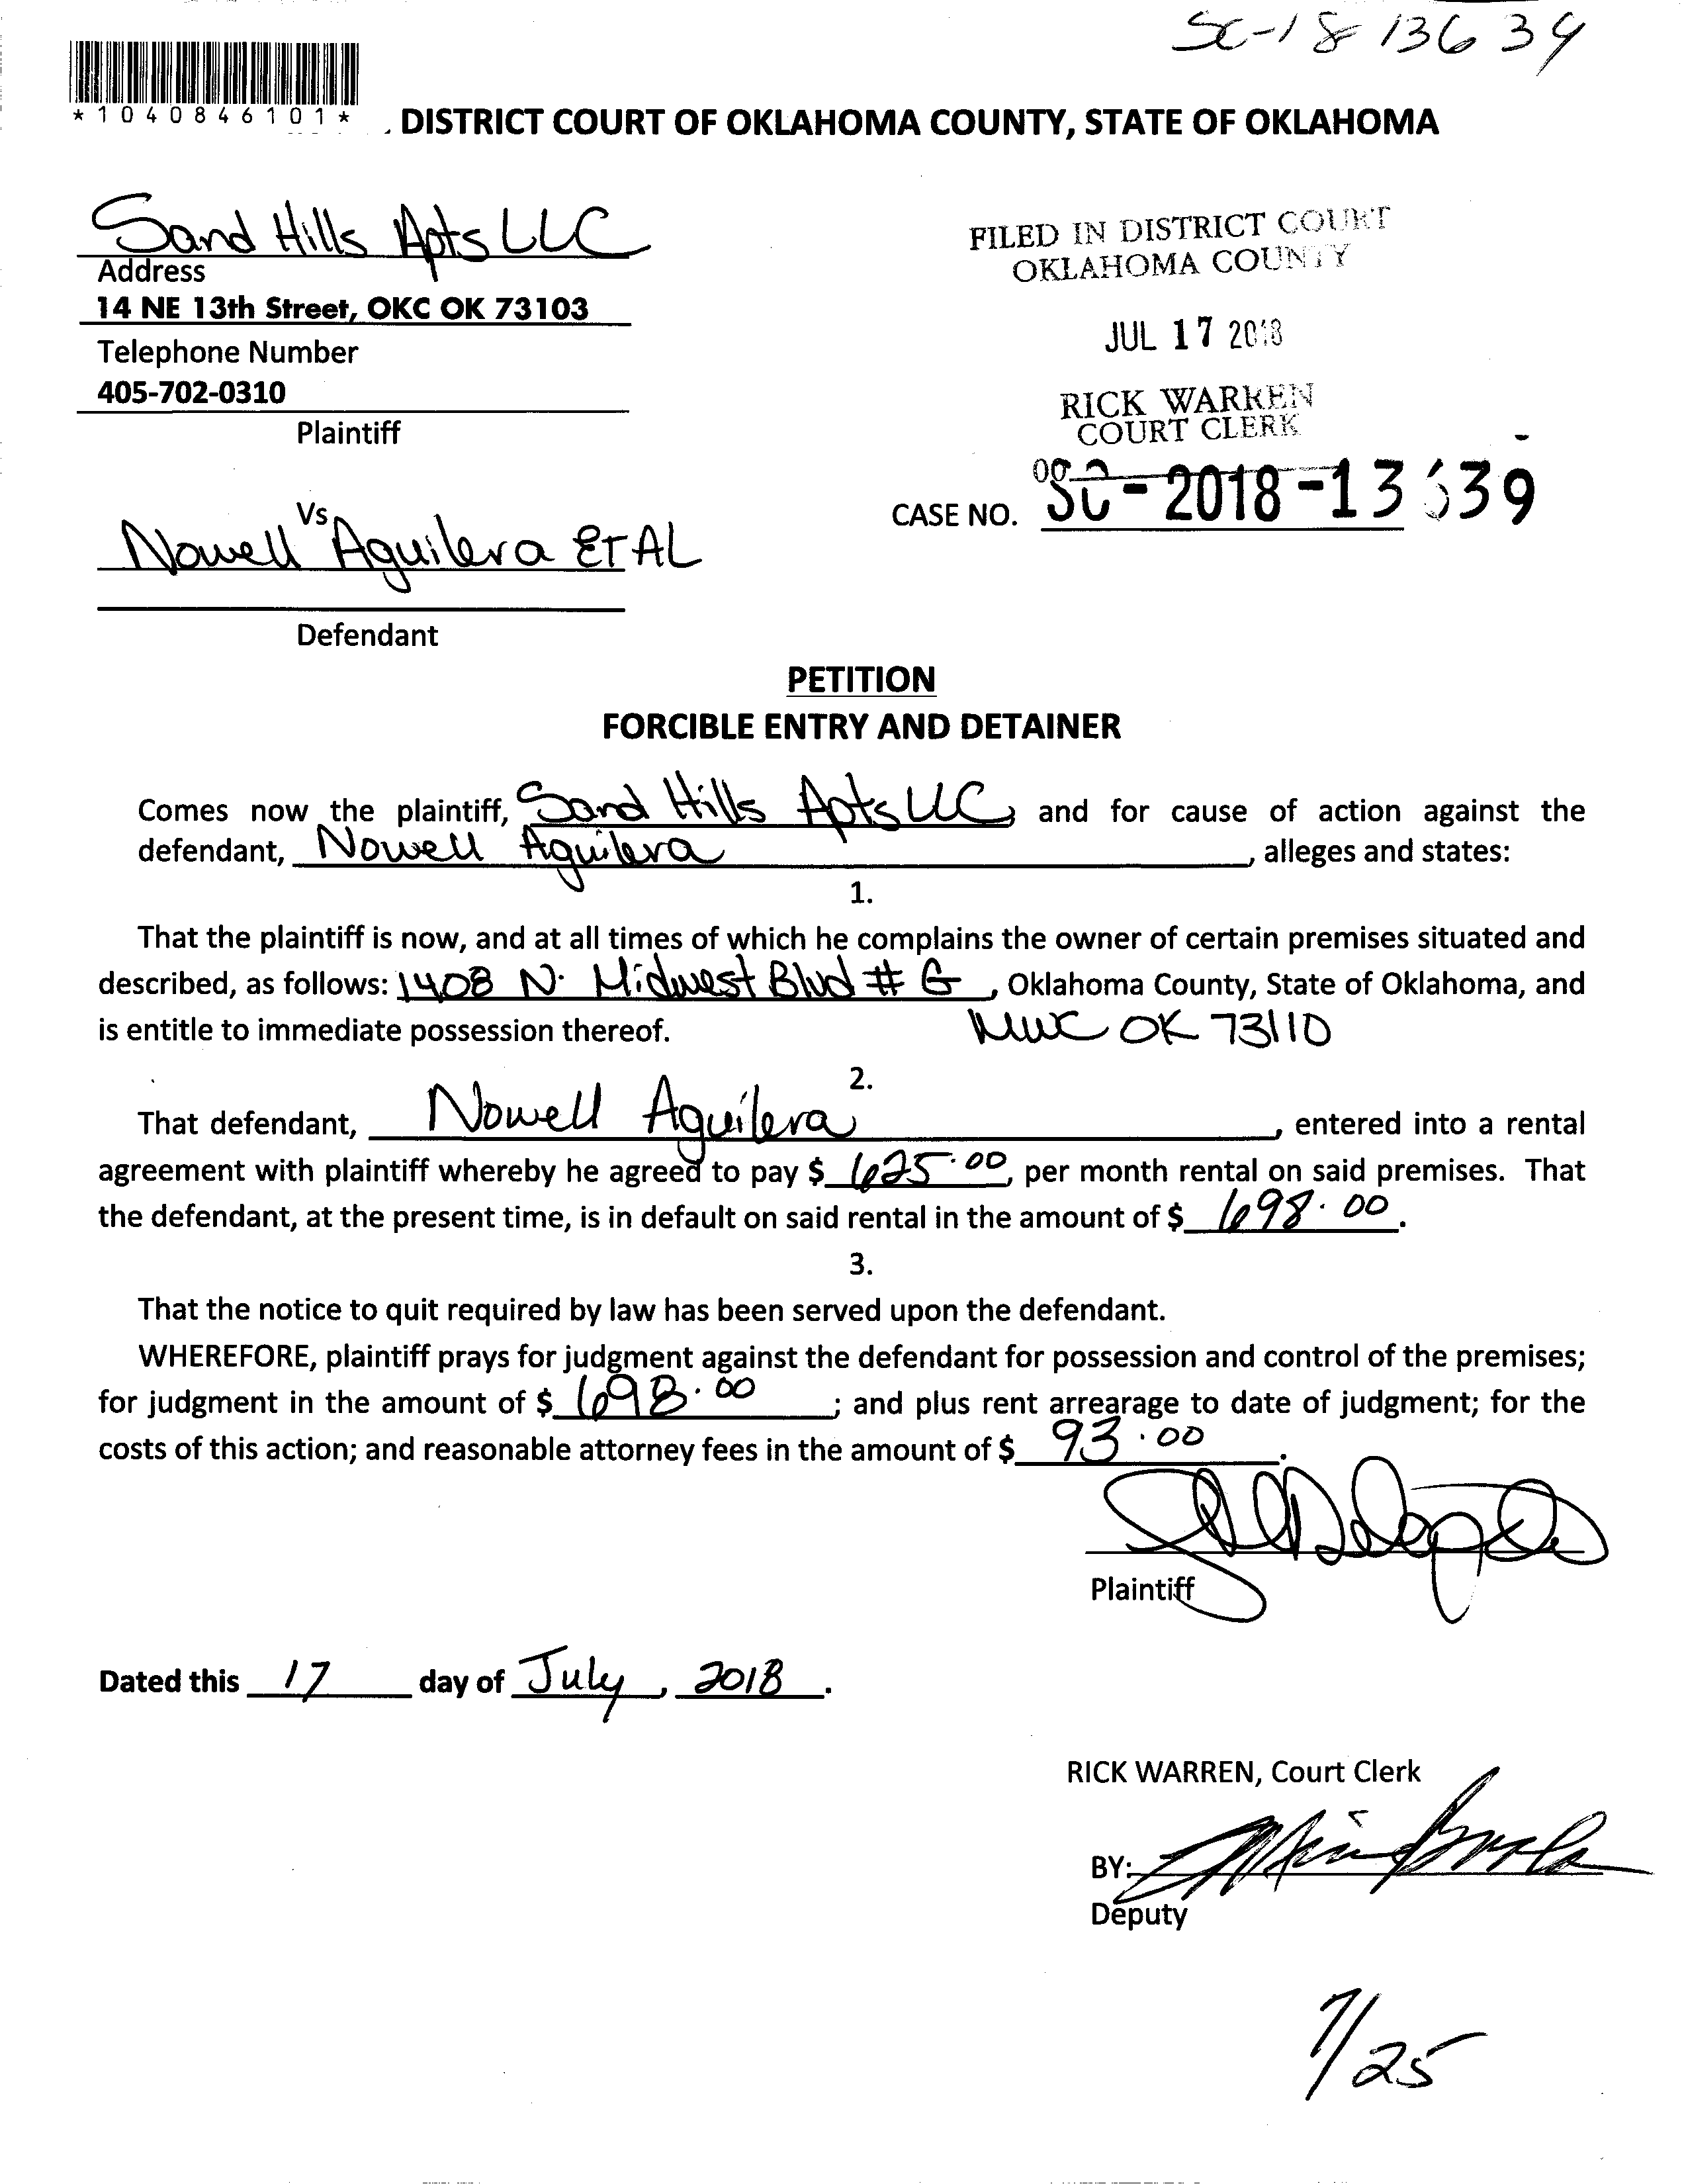 SC-18 13639
*1040846101*
DISTRICT COURT OF OKLAHOMA COUNTY, STATE OF OKLAHOMA
Sand Hills Apts LLC
Address
14 NE 13th Street, OKC OK 73103
Telephone Number
405-702-0310
Plaintiff
FILED IN DISTRICT COURT
OKLAHOMA COUNTY
JUL 17 2018
RICK WARREN
COURT CLERK
CASE NO. SC-2018-13639
Vs
Nowell Aguilera ET AL
Defendant
PETITION
FORCIBLE ENTRY AND DETAINER
Comes now the plaintiff, Sand Hills Apts LLC, and for cause of action against the
defendant, Nowell Aguilera, alleges and states:
1.
That the plaintiff is now, and at all times of which he complains the owner of certain premises situated and
described, as follows: 1408 N. Midwest Blvd # G, Oklahoma County, State of Oklahoma, and
is entitle to immediate possession thereof. MWC OK 73110
2.
That defendant, Nowell Aguilera, entered into a rental
agreement with plaintiff whereby he agreed to pay $ 625.00, per month rental on said premises. That
the defendant, at the present time, is in default on said rental in the amount of $ 698.00.
3.
That the notice to quit required by law has been served upon the defendant.
WHEREFORE, plaintiff prays for judgment against the defendant for possession and control of the premises;
for judgment in the amount of $ 698.00; and plus rent arrearage to date of judgment; for the
costs of this action; and reasonable attorney fees in the amount of $ 93.00.
Plaintiff
Dated this 17 day of July, 2018.
RICK WARREN, Court Clerk
BY:
Deputy
7/25